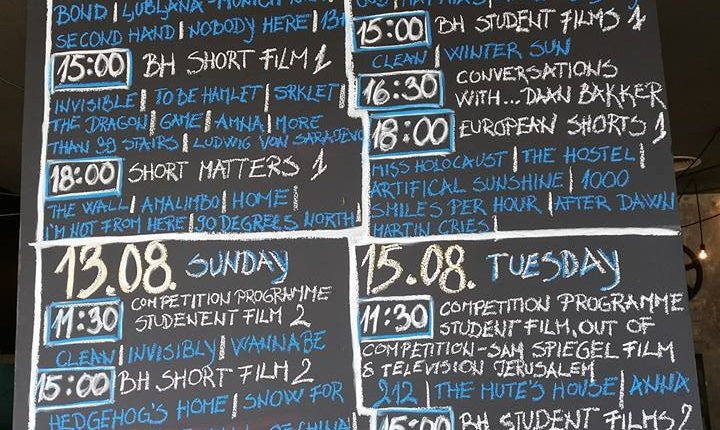 BOND | LJUBLJANA-MUNICH
SECOND HAND | NOBODY HERE | 13+
15:00 BH SHORT FILM 1
INVISIBLE | TO BE HAMLET | SRKLET |
THE DRAGON | GAME | AMNA | MORE
THAN 99 STAIRS | LUDWIG VON SARAJEVO
18:00 SHORT MATTERS 1
THE WALL | AMALIMBO | HOME |
I'M NOT FROM HERE | 90 DEGREES NORTH |
15:00 BH STUDENT FILMS 1
CLEAN | WINTER SUN
16:30 CONVERSATIONS
WITH...DAAN BAKKER
18:00 EUROPEAN SHORTS 1
MISS HOLOCAUST | THE HOSTEL |
ARTIFICAL SUNSHINE | 1000
SMILES PER HOUR | AFTER DAWN
MARTIN CRIES |
13.08. SUNDAY
11:30 COMPETITION PROGRAMME
STUDENENT FILM 2
CLEAN | INVISIBLY | WANNABE
15:00 BH SHORT FILM 2
HEDGEHOG'S HOME | SNOW FOR
OF CHINA
15.08. TUESDAY
11:30 COMPETITION PROGRAMME
STUDENT FILM, OUT OF
COMPETITION-SAM SPIEGEL FILM
& TELEVISION JERUSALEM
212 | THE MUTE'S HOUSE | ANNA
15:00 BH STUDENT FILMS 2